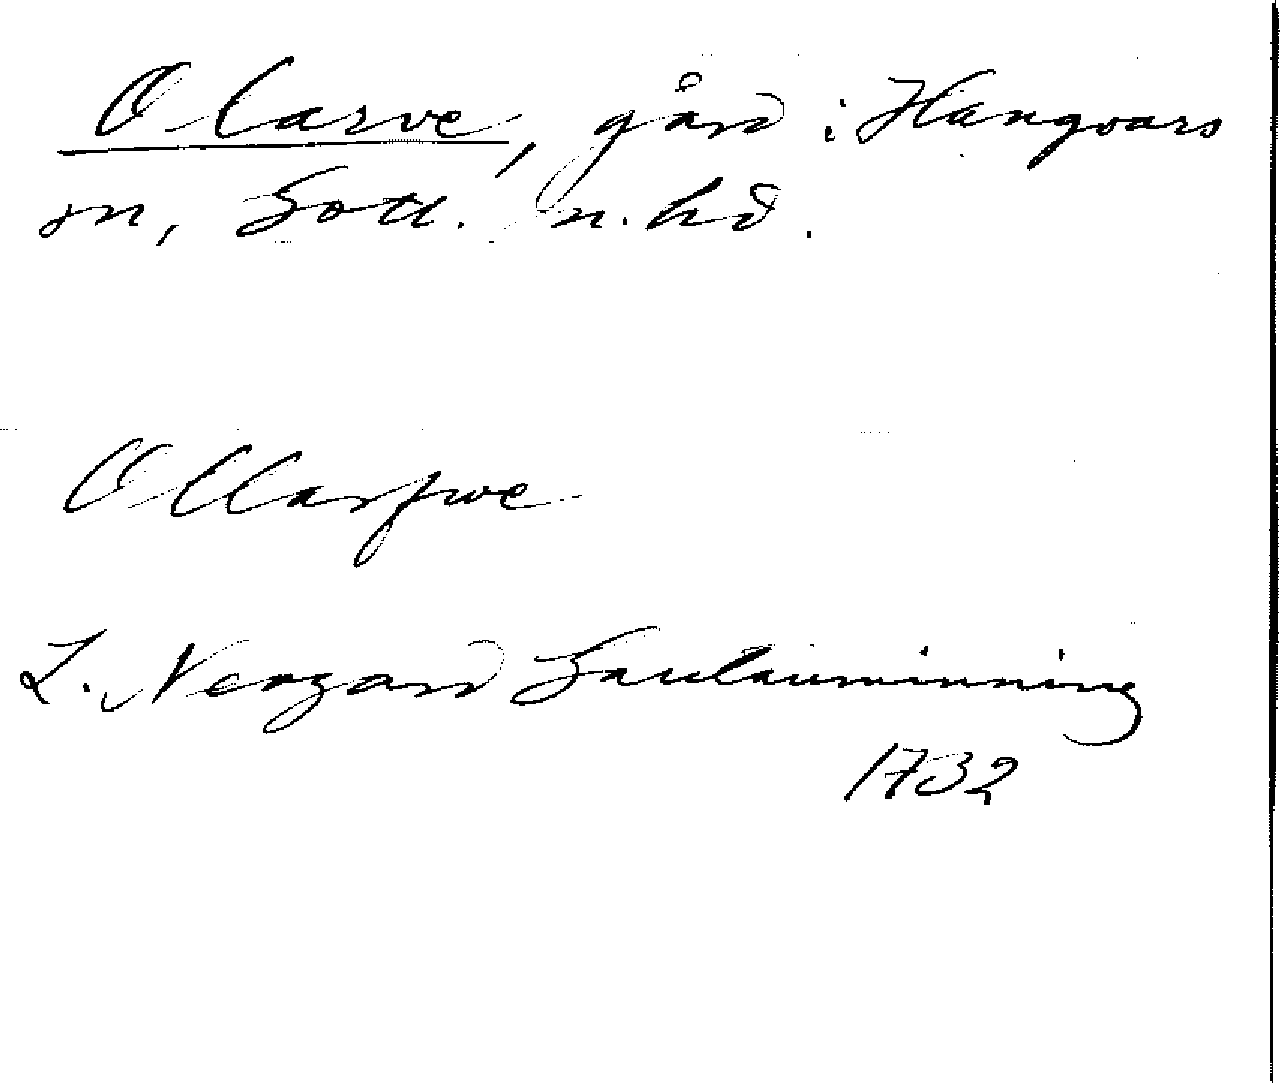 Olarve, gård i Hangvars
sn, Gotl. n. hd.
Ollarfwe
L. Neogard Gaulauminning
1732